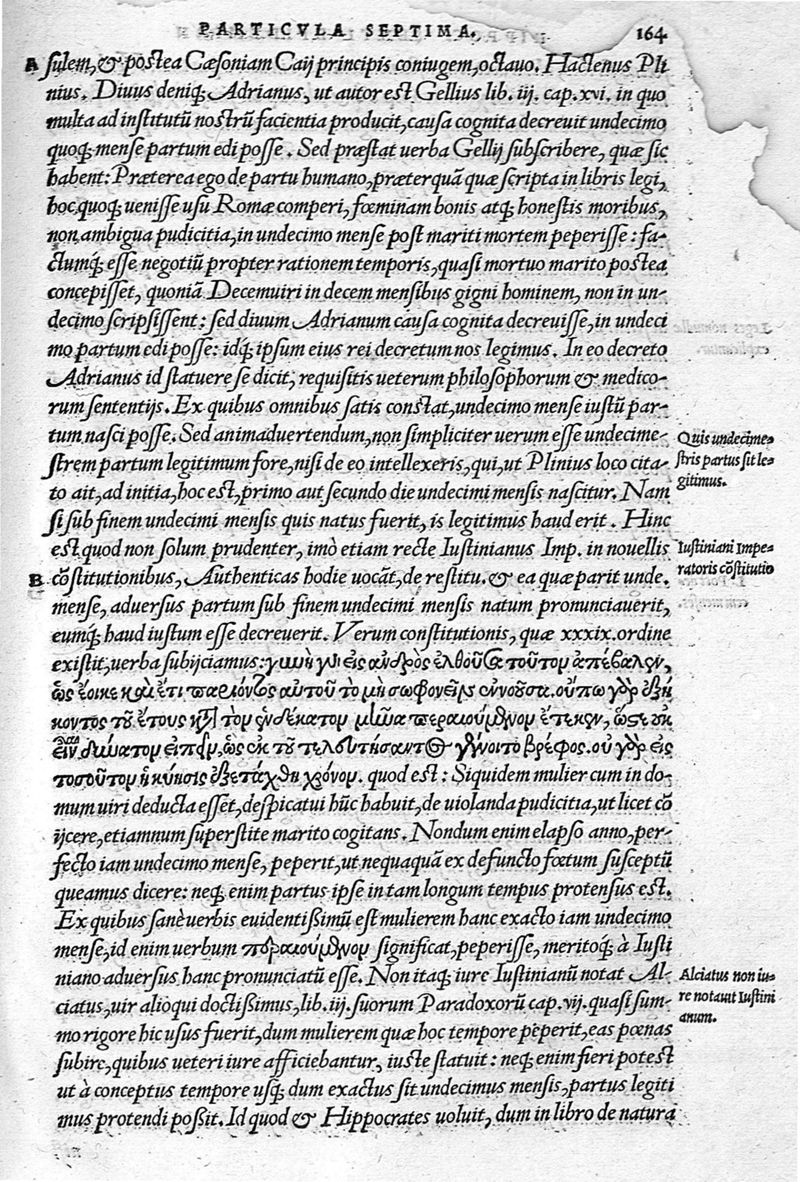 PARTICVLA SEPTIMA. 164
A sulem, & postea Cæsoniam Caij principis coniugem, octauo. Hactenus Pli
nius. Diuus deniq; Adrianus, ut autor est Gellius lib. iij. cap. xvi. in quo
multa ad institutū nostrū facientia producit, causa cognita decreuit undecimo
quoq; mense partum edi posse. Sed præstat uerba Gellij subscribere, quæ sic
habent: Præterea ego de partu humano, præterquā quæ scripta in libris legi,
hoc quoq; uenisse usu Romæ comperi, fœminam bonis atq; honestis moribus,
non ambigua pudicitia, in undecimo mense post mariti mortem peperisse: fa-
ctumq́; esse negotiū propter rationem temporis, quasi mortuo marito postea
concepisset, quoniā Decemuiri in decem mensibus gigni hominem, non in un-
decimo scripsissent: sed diuum Adrianum causa cognita decreuisse, in undeci
mo partum edi posse: idq́; ipsum eius rei decretum nos legimus. In eo decreto
Adrianus id statuere se dicit, requisitis ueterum philosophorum & medico-
rum sententijs. Ex quibus omnibus satis constat, undecimo mense iustū par-
tum nasci posse. Sed animaduertendum, non simpliciter uerum esse undecime-
strem partum legitimum fore, nisi de eo intellexeris, qui, ut Plinius loco cita-
to ait, ad initia, hoc est, primo aut secundo die undecimi mensis nascitur. Nam
si sub finem undecimi mensis quis natus fuerit, is legitimus haud erit. Hinc
est quod non solum prudenter, imò etiam recte Iustinianus Imp. in nouellis
B cōstitutionibus, Authenticas hodie uocāt, de restitu. & ea quæ parit unde.
mense, aduersus partum sub finem undecimi mensis natum pronunciauerit,
eumq́; haud iustum esse decreuerit. Verum constitutionis, quæ xxxix. ordine
existit, uerba subijciamus: γυνὴ γὰρ εἰς ἀνδρὸς ἐλθοῦσα τοῦτον ἀπέβαλεν,
ὡς ἔοικε καὶ ἔτι παρόντος αὐτοῦ τὸ μὴ σωφρονεῖν ἐννοοῦσα. οὔπω γὰρ ἐξή
κοντος τοῦ ἔτους κατὰ τὸν ἑνδέκατον μῆνα περαιούμενον ἔτεκεν, ὥστε οὐκ
εἶναι δυνατὸν εἰπεῖν, ὡς ἐκ τοῦ τελευτήσαντος γένοιτο βρέφος. οὐ γὰρ εἰς
τοσοῦτον ἡ κύησις ἐξετάχθη χρόνον. quod est: Siquidem mulier cum in do-
mum uiri deducta esset, despicatui hūc habuit, de uiolanda pudicitia, ut licet cō
ijcere, etiamnum superstite marito cogitans. Nondum enim elapso anno, per-
fecto iam undecimo mense, peperit, ut nequaquā ex defuncto fœtum susceptū
queamus dicere: neq; enim partus ipse in tam longum tempus protensus est.
Ex quibus sanè uerbis euidentißimū est mulierem hanc exacto iam undecimo
mense, id enim uerbum περαιούμενον significat, peperisse, meritoq́; à Iusti
niano aduersus hanc pronunciatū esse. Non itaq; iure Iustinianū notat Al-
ciatus, uir alioqui doctißimus, lib. iij. suorum Paradoxorū cap. vij. quasi sum-
mo rigore hic usus fuerit, dum mulierem quæ hoc tempore peperit, eas pœnas
subire, quibus ueteri iure afficiebantur, iuste statuit: neq; enim fieri potest
ut à conceptus tempore usq; dum exactus sit undecimus mensis, partus legiti
mus protendi poßit. Id quod & Hippocrates uoluit, dum in libro de natura
Quis undecime-
stris partus sit le-
gitimus.
Iustiniani Impe-
ratoris cōstitutio
Alciatus non iu-
re notauit Iustini
anum.